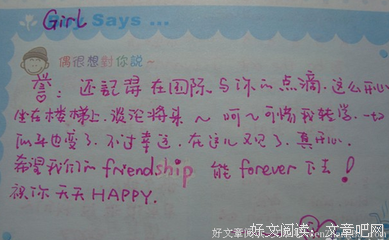 Girl Says ...
偶很想對你說~
誉: 还记得在国际与你的点滴. 这么开心
坐在楼梯上. 谈论将来 ~ 呵~可惜我转学. 一切
似乎也变了. 不过幸运. 在这儿又见了. 真开心.
希望我们的 friendship 能 forever 下去!
祝你天天 HAPPY.
好文阅读: 文章吧网